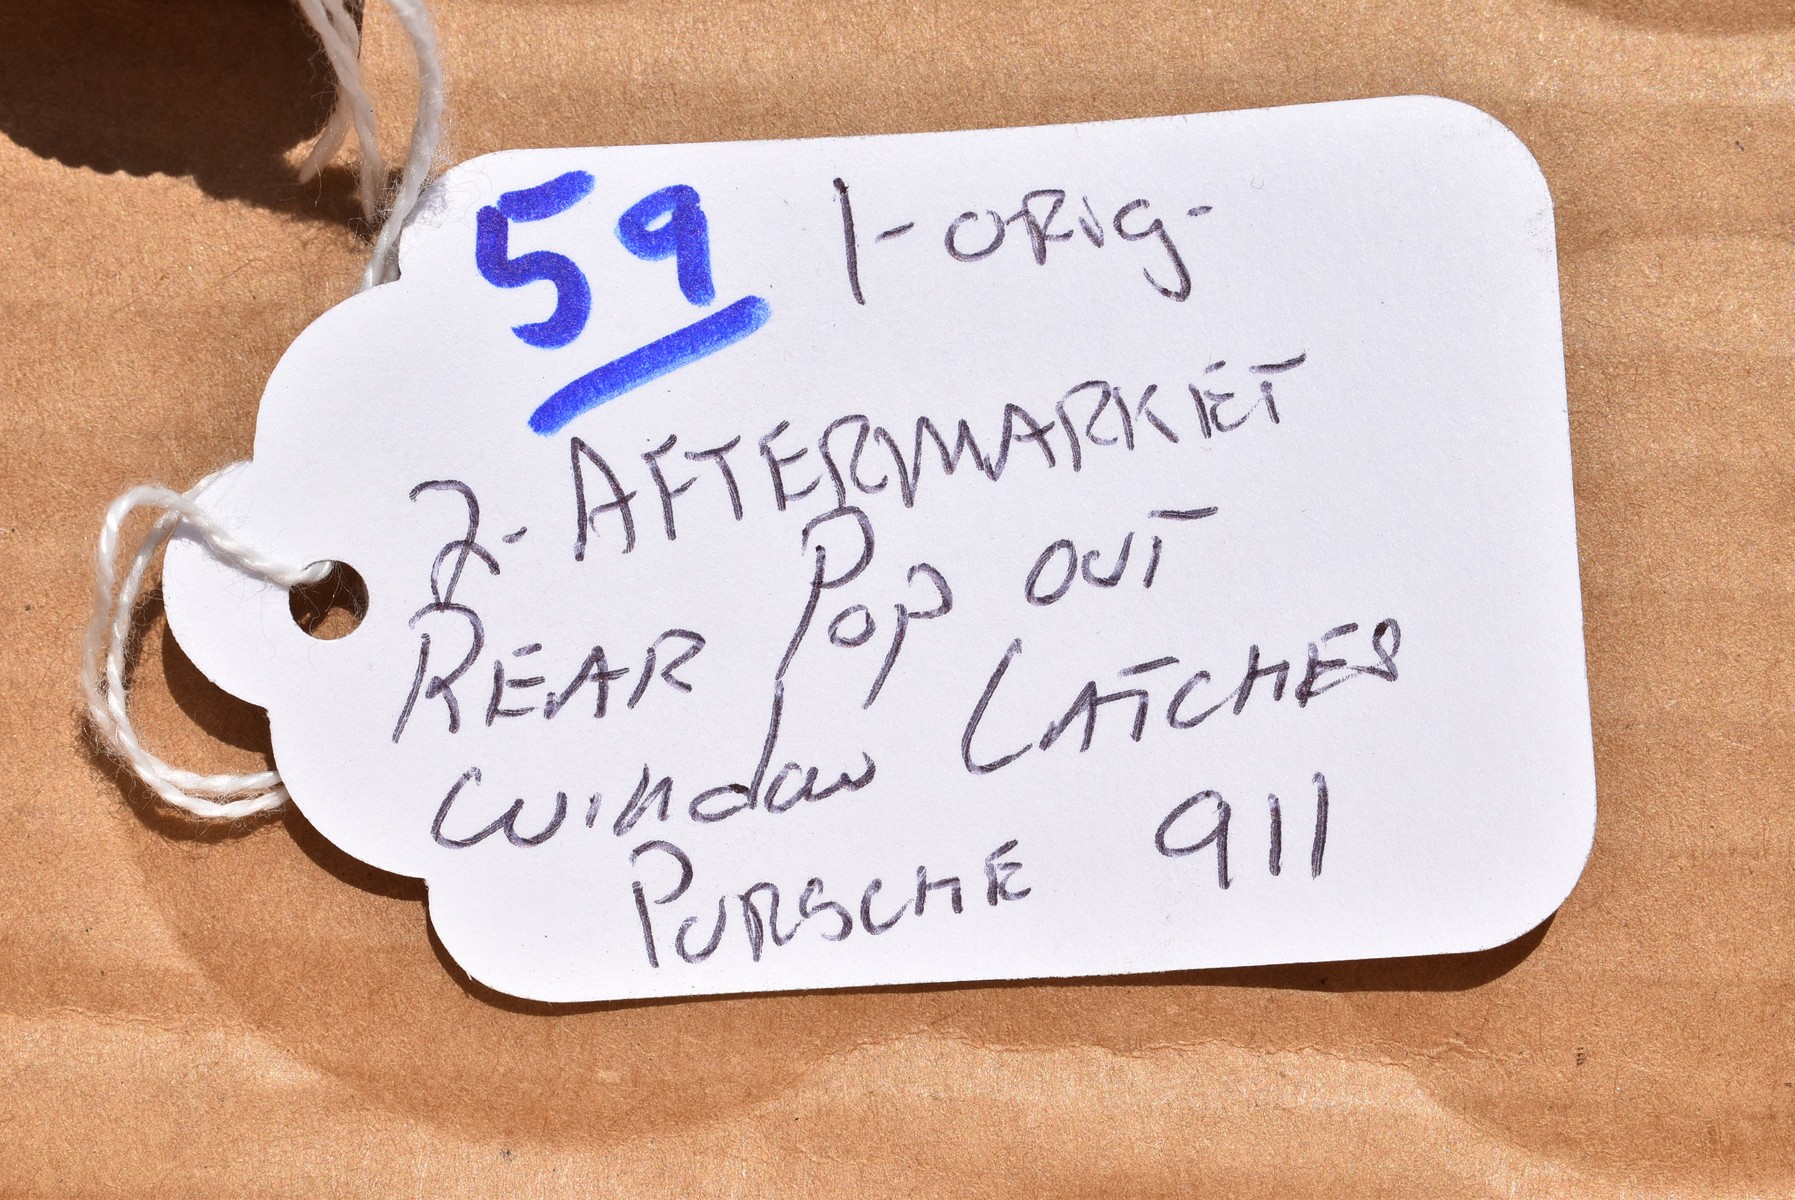 59 1-ORIG-
2-AFTERMARKET
REAR POP OUT
WINDOW LATCHES
PORSCHE 911